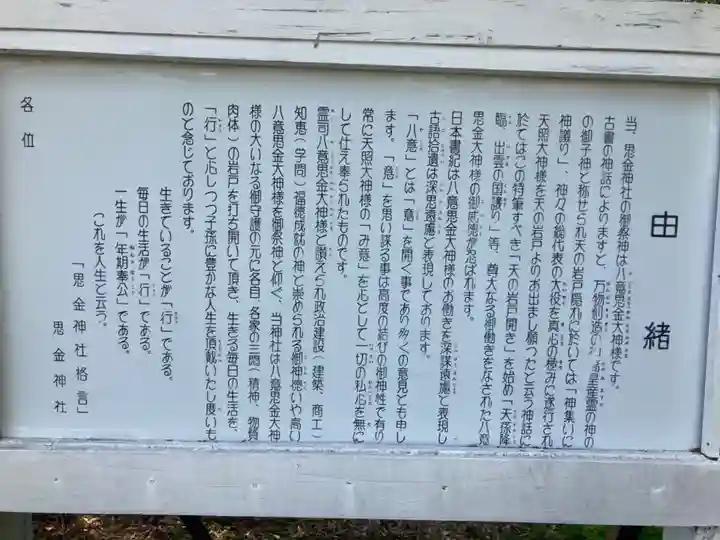 由緒
当、思金神社の御祭神は八意思金大神様です。
古書の神話によりますと、万物創造の高皇産霊の神の
の御子神と称せられ天の岩戸隠れに於いては「神集いに
神議り」、神々の総代表の大役を真心の極みに遂行され
天照大神様を天の岩戸よりお出まし願ったと云う神話に
於てはこの特筆すべき「天の岩戸開き」を始め「天孫降
臨、出雲の国譲り」等、尊大なる御働きをなされた八意
思金大神様の御威徳が忍ばれます。
日本書紀は八意思金大神様のお働きを深謀遠慮と表現し
古語拾遺は深思遠慮と表現しております。
「八意」とは「意」を開く事であり多くの意見とも申し
ます。「意」を思い謀る事は高度の結びの御神性で有り
常に天照大神様の「み意」を心として一切の私心を無に
して仕え奉られたものです。
霊司八意思金大神様と讃えられ政治建設（建築、商工）
知恵（学問）福徳成就の神と崇められる御神徳いや高い
八意思金大神様を御祭神と仰ぐ、当神社は八意思金大神
様の大いなる御守護の元に各自、各家の三魂（精神、物質
肉体）の岩戸を打ち開いて頂き、生きる毎日の生活を、
「行」と心しつつ子孫に豊かな人生を頂戴いたし度いも
のと念じております。
生きていることが「行」である。
毎日の生活が「行」である。
一生が「年期奉公」である。
これを人生と云う。
「思金神社格言」
思金神社
各位